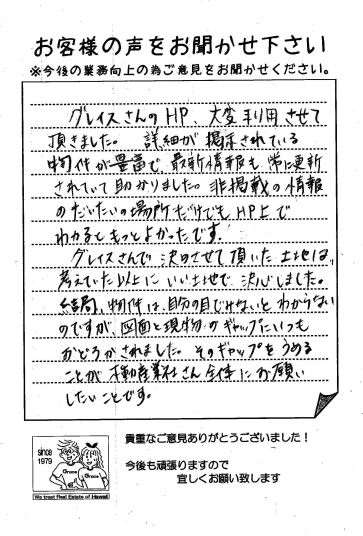 お客様の声をお聞かせ下さい
※今後の業務向上の為ご意見をお聞かせください。
グレイスさんのHP、大変利用させて
頂きました。詳細が掲示されている
物件が豊富で、最新情報も常に更新
されていて助かりました。非掲載の情報
のだいたいの場所だけでもHP上で
わかるともっとよかったです。
グレイスさんで決めさせて頂いた土地は、
考えていた以上にいい土地で決心しました。
結局、物件は、自分の目でみないとわからない
のですが、図面と現物のギャップにいつも
おどろかされました。そのギャップをうめる
ことが不動産業社さん全体にお願い
したいことです。
since
1979
Grace
Grace
We trust Real Estate of Hawaii
貴重なご意見ありがとうございました！
今後も頑張りますので
宜しくお願い致します